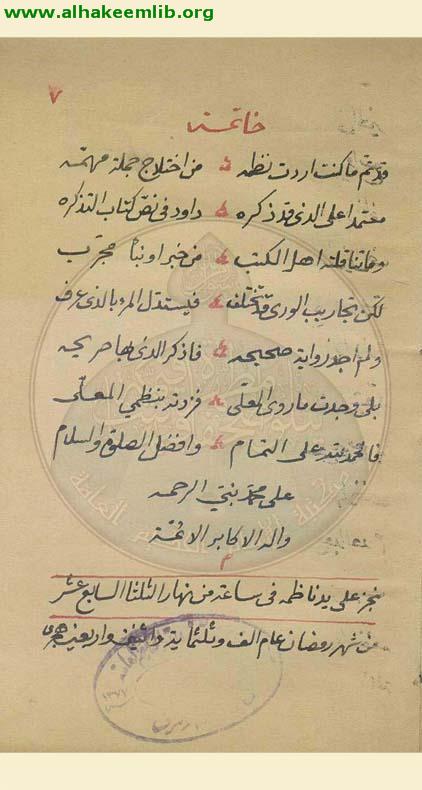 www.alhakeemlib.org
٧
خاتمة
قد تم ما كنت اردت نظمه من اختلاج جملة مهمه
معتمدا على الذى قد ذكره داود فى نص كتاب التذكره
وما تناقلته اهل الكتب من خبر او نبأ مجرب
لكن تجاريب الورى قد تختلف فيستدل المرء بالذى عرف
ولم اجد رواية صحيحه فاذكر الذى بها صريحه
بلى وجدت ما روى المعلى فزدته بنظمي المعلى
فالحمد لله على التمام وافضل الصلوة والسلام
على محمد نبي الرحمه
واله الاكابر الائمة
م
نجز على يد ناظمه فى ساعة من نهار الثلثا السابع عشر
من شهر رمضان عام الف وثلثمائة واثنين واربعين هجرى